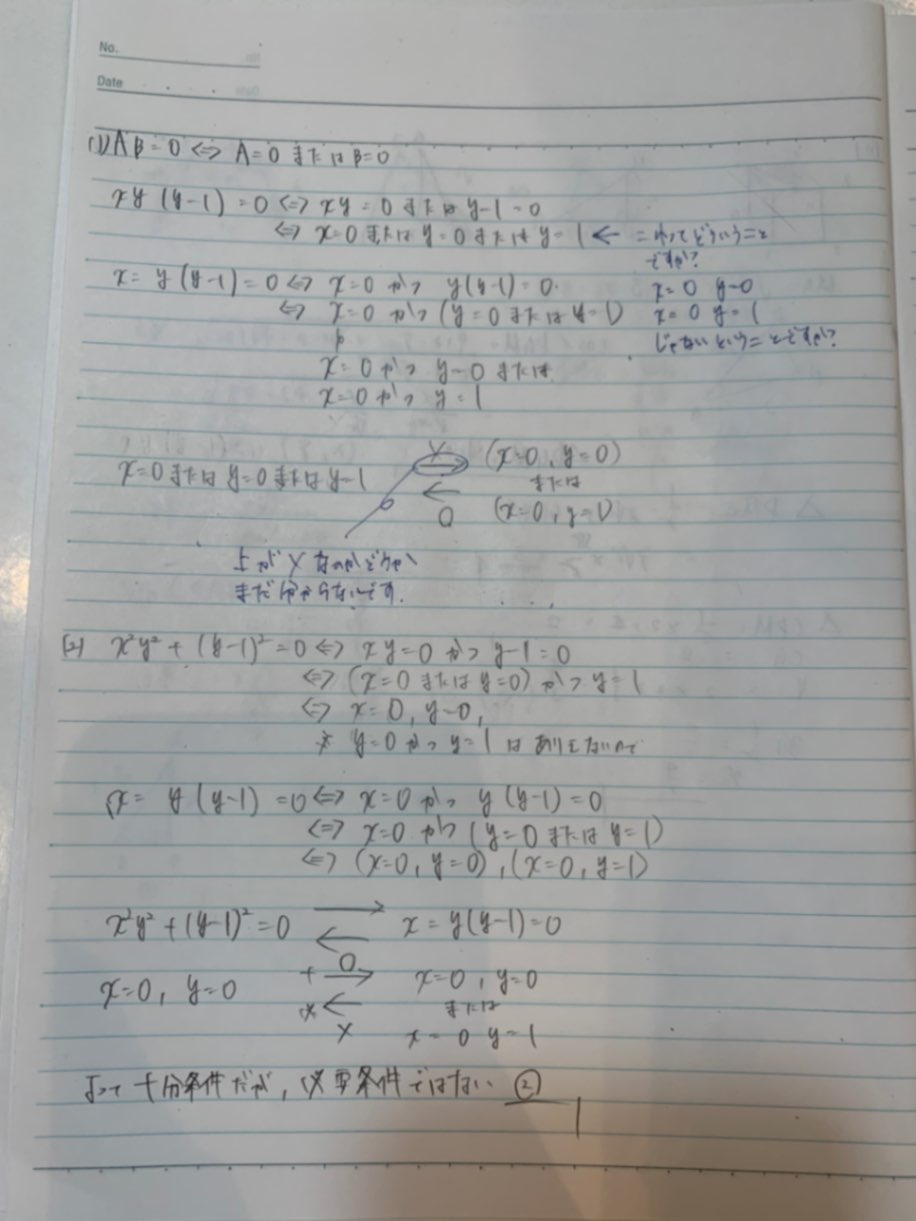 No.
Date
(1) AB=0 ⇔ A=0 または B=0
xy(y-1)=0 ⇔ xy=0 または y-1=0
⇔ x=0 または y=0 または y=1 ← これってどういうこと
ですか?
x=y(y-1)=0 ⇔ x=0 かつ y(y-1)=0.
x=0 y=0
⇔ x=0 かつ (y=0 または y=1)
x=0 y=1
じゃないということですか?
x=0 かつ y=0 または
x=0 かつ y=1
x=0 または y=0 または y=1
× → (x=0, y=0)
または
← ○ (x=0, y=1)
上が×なのかどうか
まだ分からないです.
(2) x²y²+(y-1)²=0 ⇔ xy=0 かつ y-1=0
⇔ (x=0 または y=0) かつ y=1
⇔ x=0, y=0,
* y=0 かつ y=1 はありえないので
x=y(y-1)=0 ⇔ x=0 かつ y(y-1)=0
⇔ x=0 かつ (y=0 または y=1)
⇔ (x=0, y=0), (x=0, y=1)
x²y²+(y-1)²=0 → ← x=y(y-1)=0
x=0, y=0 十 ○ → x=0, y=0
必 ← または
× x=0 y=1
よって十分条件だが, 必要条件ではない ②